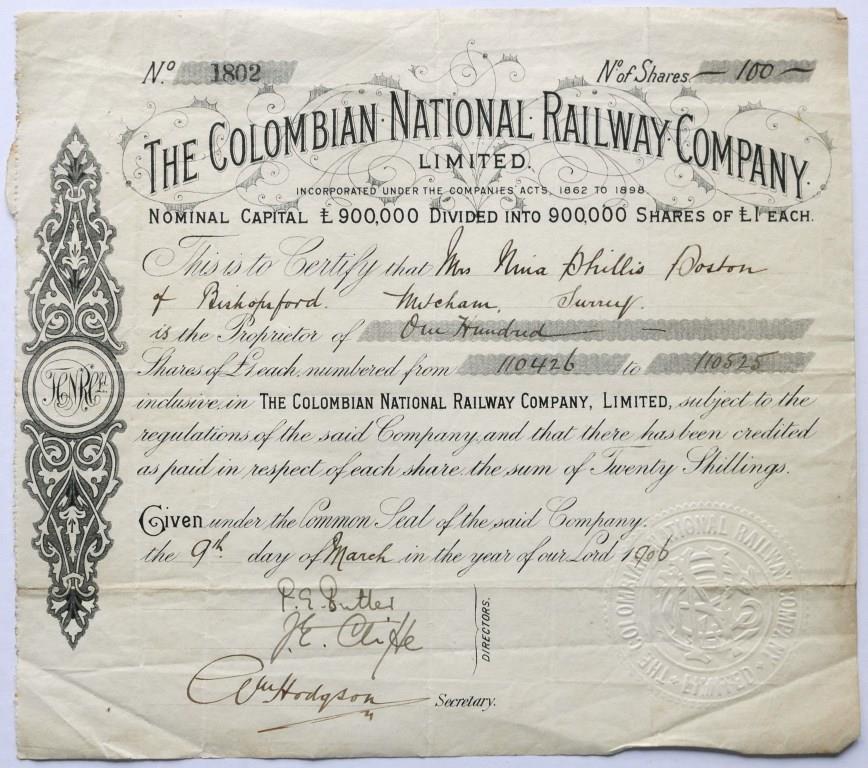 Nº 1802 Nº of Shares — 100 —
THE COLOMBIAN NATIONAL RAILWAY COMPANY
LIMITED.
INCORPORATED UNDER THE COMPANIES ACTS, 1862 TO 1898.
NOMINAL CAPITAL £900,000 DIVIDED INTO 900,000 SHARES OF £1 EACH.
This is to Certify that Mrs Nina Phillis Boston
of Bishopsford. Mitcham, Surrey.
is the Proprietor of One Hundred
Shares of £1 each, numbered from 110426 to 110525
inclusive, in THE COLOMBIAN NATIONAL RAILWAY COMPANY, LIMITED, subject to the
regulations of the said Company, and that there has been credited
as paid in respect of each share the sum of Twenty Shillings.
Given under the Common Seal of the said Company.
the 9th day of March in the year of our Lord 1906
P.E. Butler
J.E. Cliffe
DIRECTORS.
Wm Hodgson Secretary.
THE COLOMBIAN NATIONAL RAILWAY COMPANY LIMITED